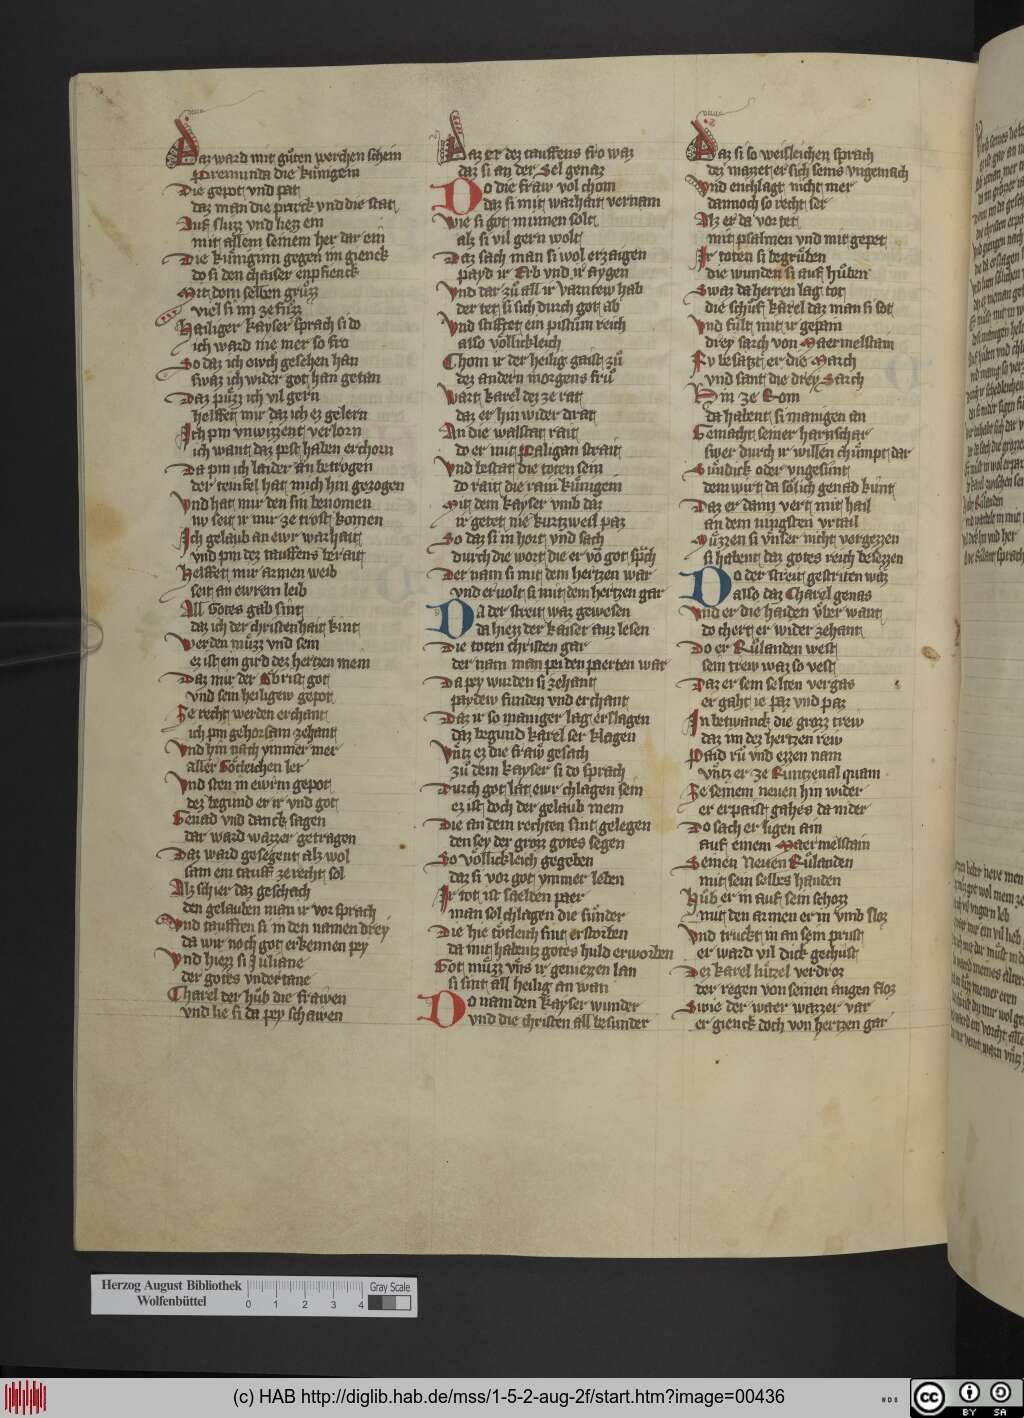 Daz ward mit gůten werchen schein
Premunda die kunigein
Die gepot vnd pat
daz man die pruck vnd die stat
Auf sluzz vnd liezz ein
mit allem seinem her dar ein
Die kuniginn gegen im gienck
do si den chaiser enpfienck
Mit dem selben grůzz
viel si im ze fůzz
Hailiger kayser sprach si do
ich ward nie mer so fro
So daz ich ewch gesehen han
swaz ich wider got han getan
Daz půzz ich vil gern
helffet mir daz ich ez gelern
Ich pin vnwizzent verlorn
ich want daz pest haben erchorn
Da pin ich laider an betrogen
der teufel hat mich hin gezogen
Vnd hat mir den sin benomen
nv seit ir mir ze trost komen
Ich gelaub an ewr warhait
vnd pin dez tauffens berait
Helffet mir armen weib
seit an ewrem leib
All Gotes gab sint
daz ich der christenhait kint
Werden můzz vnd sein
ez ist ein gird dez hertzen mein
Daz mir der Christ got
vnd sein heiligew gepot
Ze recht werden erchant
ich pin gehorsam zehant
Vnd hin nach ymmer mer
aller Gotleichen ler
Vnd sten in ewrm gepot
dez begund er ir vnd got
Genad vnd danck sagen
dar ward wazzer getragen
Daz ward gesegent alz wol
sam ein tauff ze recht sol
Alz schier daz geschach
den gelauben man ir vor sprach
Vnd tauften si in den namen drey
da wir noch got erkennen pey
Vnd hiezz si Juliane
der gotes vndertane
Charel der hůb die frawen
vnd lie si da pey schawen
Daz er dez tauffens fro waz
daz si an der Sel genaz
Do die fraw vol chom
daz si mit warhait vernam
Wie si got minnen solt
alz si vil gern wolt
Daz sach man si wol erzaigen
payd ir Erb vnd ir aygen
Vnd dar zů all ir varntew hab
der tet si sich durch got ab
Vnd stifftet ein pistum reich
also vollickleich
Chom ir der heilig gaist zů
dez andern morgens frů
Wart karel dez ze rat
daz er hin wider drat
An die walstat rait
do er mit Paligan strait
Vnd bestat die toten sein
do rait die rain kunigein
Mit dem kayser vmb daz
ir getet nie kurtzweil paz
So daz si in hort vnd sach
durch die wort die er vo got sprach
Der nam si mit dem hertzen war
vnd ervolt si mit dem hertzen gar
Da der streit waz gewesen
da hiezz der kaiser auz lesen
Die toten christen gar
der nam man pei den paerten war
Da pey wurden si zehant
paydew funden vnd erchant
Daz ir so maniger lag erslagen
daz begund karel ser klagen
Vntz ez die fraw gesach
zů dem kayser si do sprach
Durch got lat ewr chlagen sein
ez ist doch der gelaub mein
Die an dem rechten sint gelegen
den sey der grozz gotes segen
So vollickleich gegeben
daz si vor got ymmer leben
Ir tot ist saelden paer
man sol chlagen die sunder
Die hie totleich sint erstorben
da mit habentz gotes huld erworben
Got můzz vns ir geniezzen lan
si sint all heilig an wan
Do nam den kayser wunder
vnd die christen all besunder
Daz si so weisleichen sprach
dez mazzet er sich seins vngemach
Vnd enchlagt nicht mer
dannoch so recht ser
Alz er da vor tet
mit psalmen vnd mit gepet
Ir toten si begrůben
die wunden si auf hůben
Swaz da herren lag tot
die schuf karel daz man si sot
Vnd fult mit ir gepain
drey sarch von Maermelstain
Er besatzt er die March
vnd sant die drey Sarch
Hin ze Rom
da habent si manigen an
Gemacht seiner harnschar
swer durch ir willen chumpt dar
Sundick oder vngesunt
dem wirt da solich genad kunt
Daz er dann vert mit hail
an dem jungsten vrtail
Muzzen si vnser nicht vergezzen
si habent daz gotes reich besezzen
Do der streit gestriten waz
also daz Charel genas
Vnd er die haiden vber want
do chert er wider zehant
Do er Rulanden west
sein trew waz so vest
Daz er sein selten vergas
er gaht ie paz vnd paz
In betwanck die grozz trew
daz im dez hertzen rew
Paid rů vnd ezzen nam
vntz er ze Runtzenal quam
Ze seinem neuen hin wider
er erpaist gahes da nider
Do sach er ligen ain
auf einem Maermelstain
Seinen Neuen Rulanden
mit sein selbes handen
Hůb er in auf sein schozz
mit den armen er in vmb sloz
Vnd truckt in an sein prust
er ward vil dick gechust
Dez karel lutzel verdroz
der regen von seinen augen floz
Swie der waer wazzer var
er gienck doch von hertzen gar
Herzog August Bibliothek
Wolfenbüttel
0 1 2 3 4
Gray Scale
(c) HAB http://diglib.hab.de/mss/1-5-2-aug-2f/start.htm?image=00436
WDB
cc BY SA